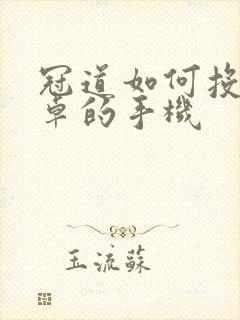 冠道如何投
卓的手機
玉流蘇